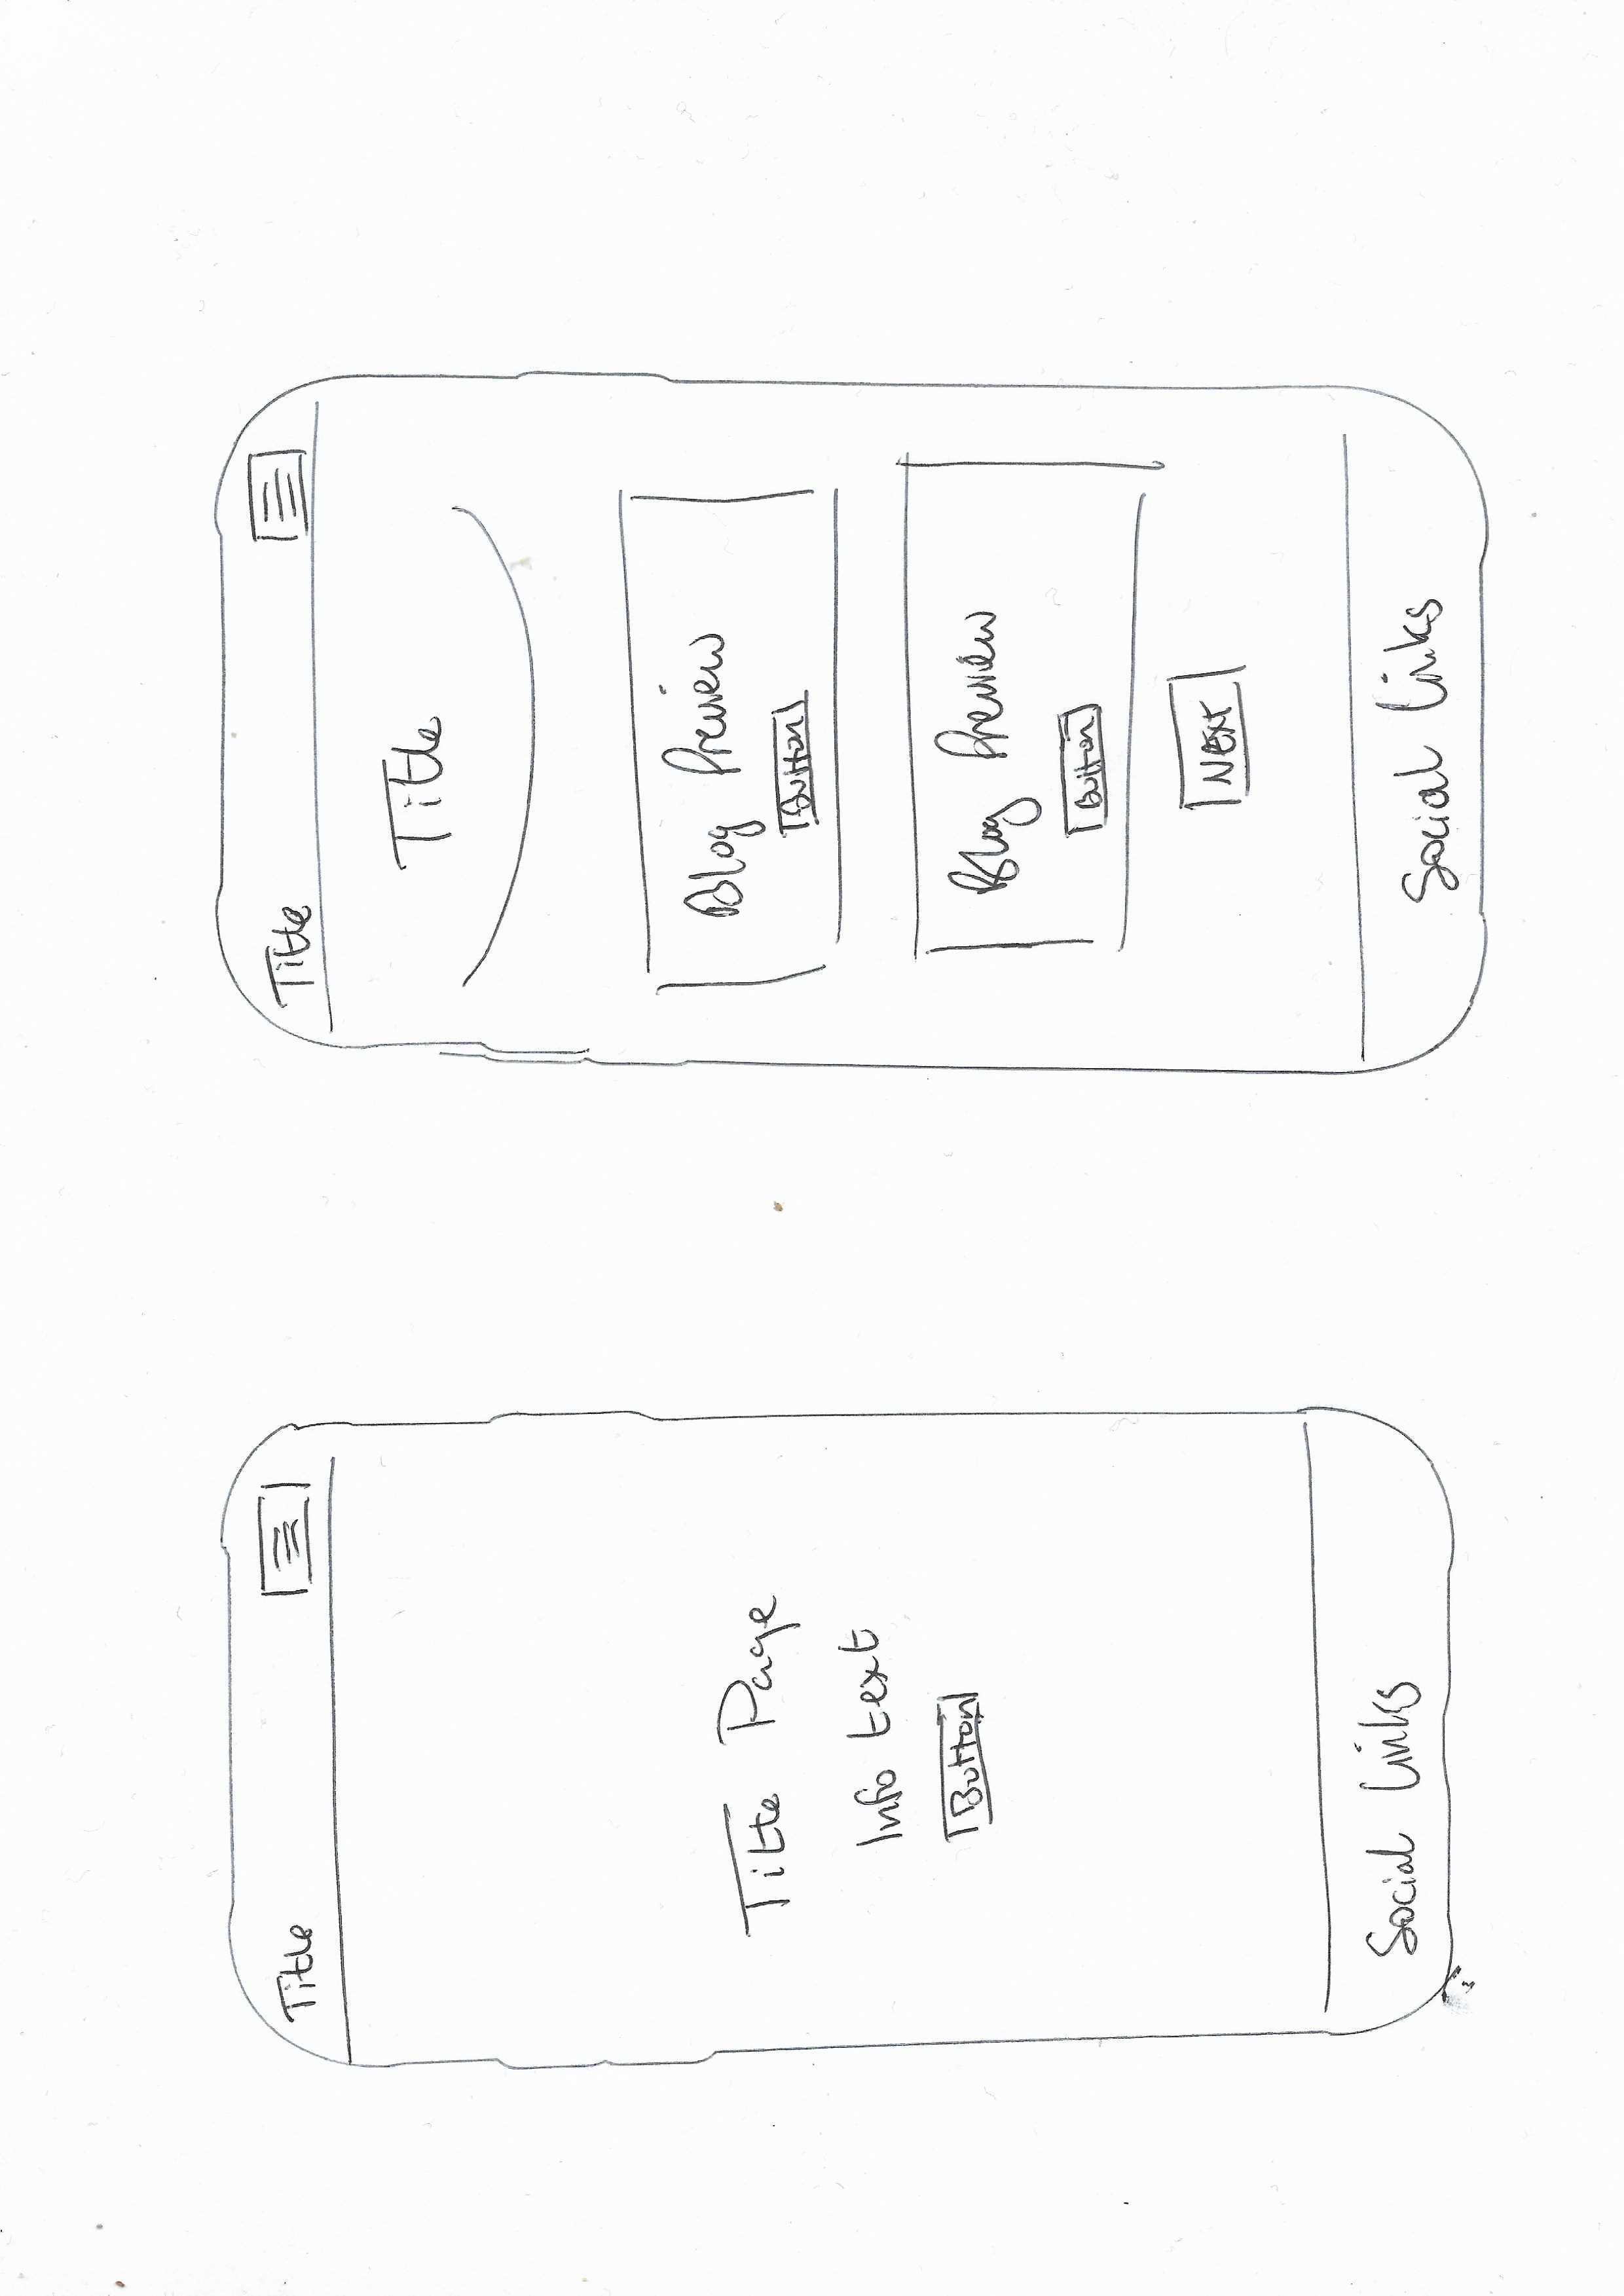 Title
Title Page
Info text
Button
Social Links
Title
Title
Blog Preview
Button
Blog Preview
Button
NEXT
Social Links